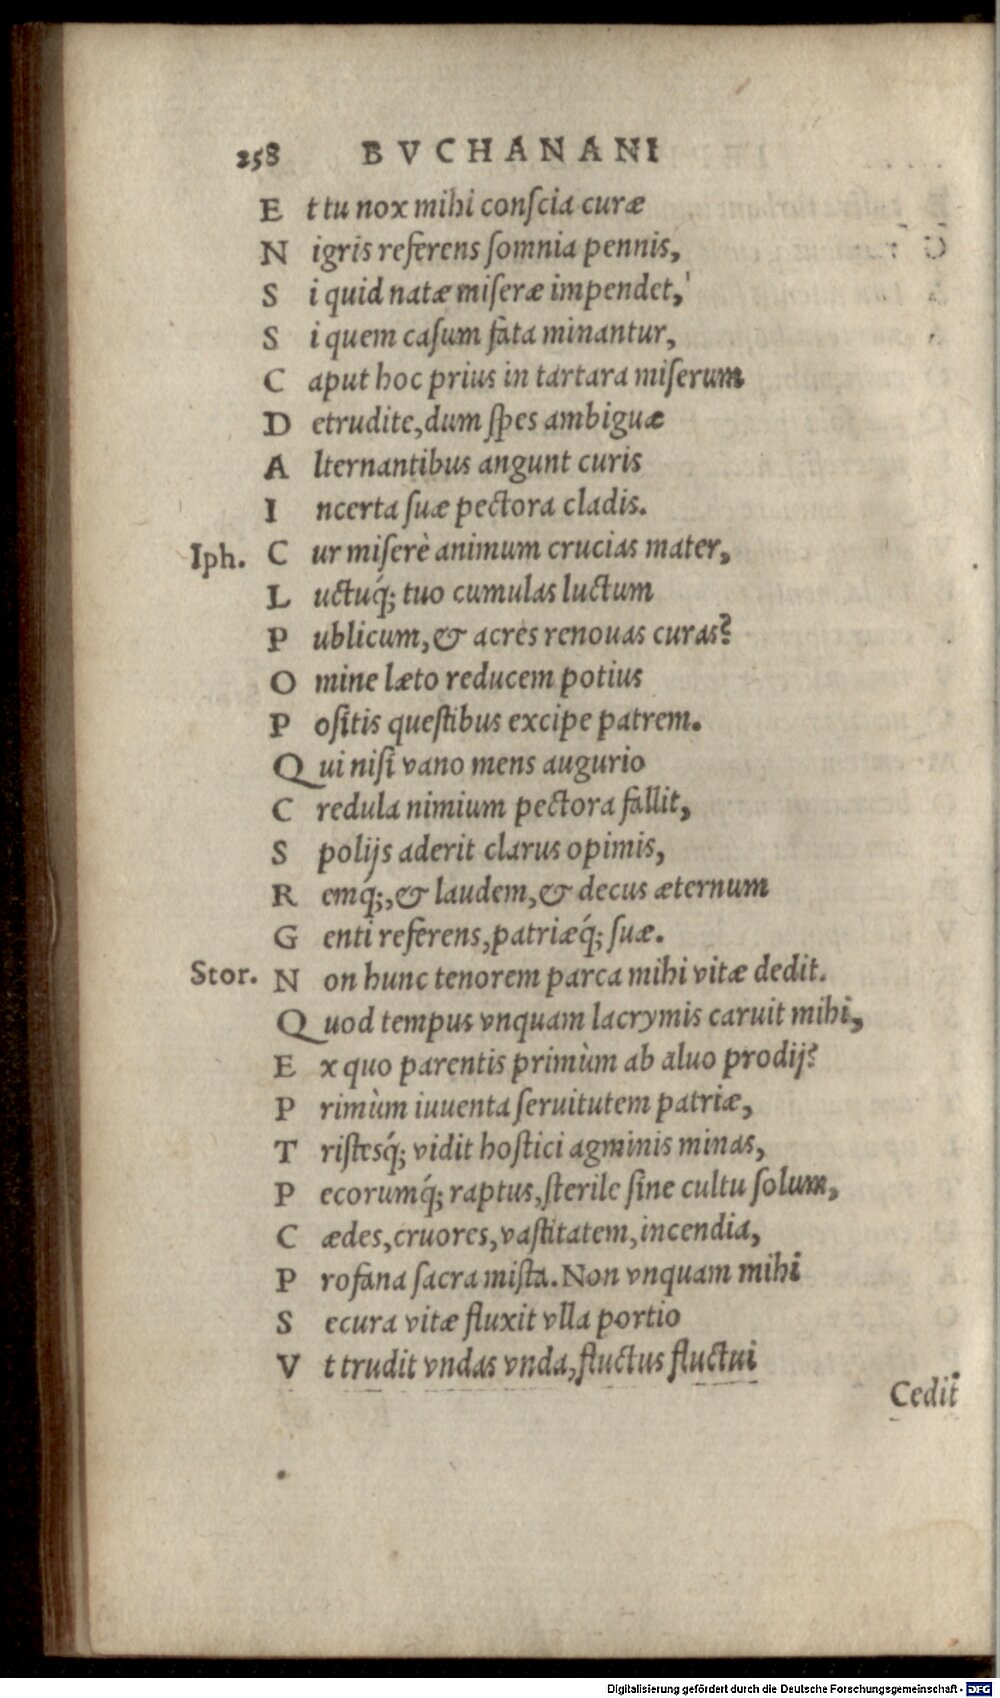 258 BVCHANANI
Et tu nox mihi conſcia curæ
Nigris referens ſomnia pennis,
Si quid natæ miſeræ impendet,
Si quem caſum fata minantur,
Caput hoc prius in tartara miſerum
Detrudite, dum ſpes ambiguæ
Alternantibus angunt curis
Incerta ſuæ pectora cladis.
Iph. Cur miſerè animum crucias mater,
Luctuq́; tuo cumulas luctum
Publicum, & acres renouas curas?
Omine læto reducem potius
Poſitis queſtibus excipe patrem.
Qui niſi vano mens augurio
Credula nimium pectora fallit,
Spolijs aderit clarus opimis,
Remq́;, & laudem, & decus æternum
Genti referens, patriæq́; ſuæ.
Stor. Non hunc tenorem parca mihi vitæ dedit.
Quod tempus vnquam lacrymis caruit mihi,
Ex quo parentis primùm ab aluo prodij?
Primùm iuuenta ſeruitutem patriæ,
Triſtesq́; vidit hoſtici agminis minas,
Pecorumq́; raptus, ſterile ſine cultu ſolum,
Cædes, cruores, vaſtitatem, incendia,
Profana ſacra miſta. Non vnquam mihi
Secura vitæ fluxit vlla portio
Vt trudit vndas vnda, fluctus fluctui
Cedit
Digitalisierung gefördert durch die Deutsche Forschungsgemeinschaft - DFG